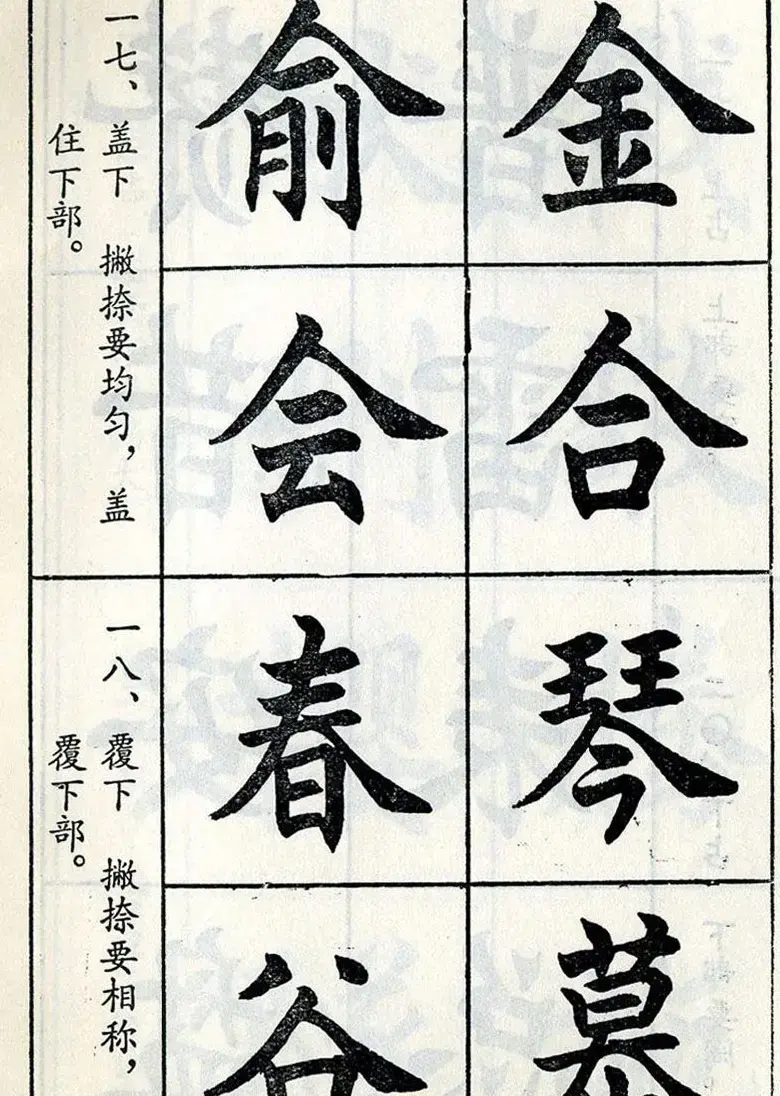 金
合
琴
慕
俞
会
春
谷
一七、盖下 撇捺要均匀，盖
住下部。
一八、覆下 撇捺要相称，
覆下部。